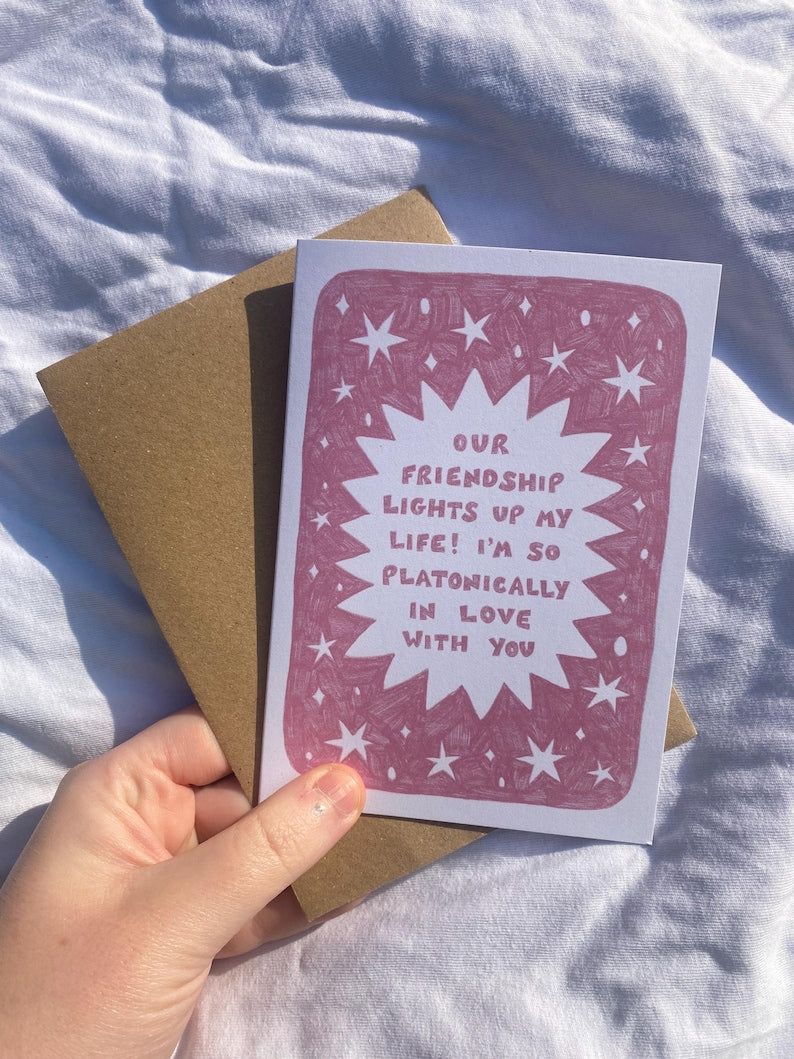 OUR
FRIENDSHIP
LIGHTS UP MY
LIFE! I'M SO
PLATONICALLY
IN LOVE
WITH YOU